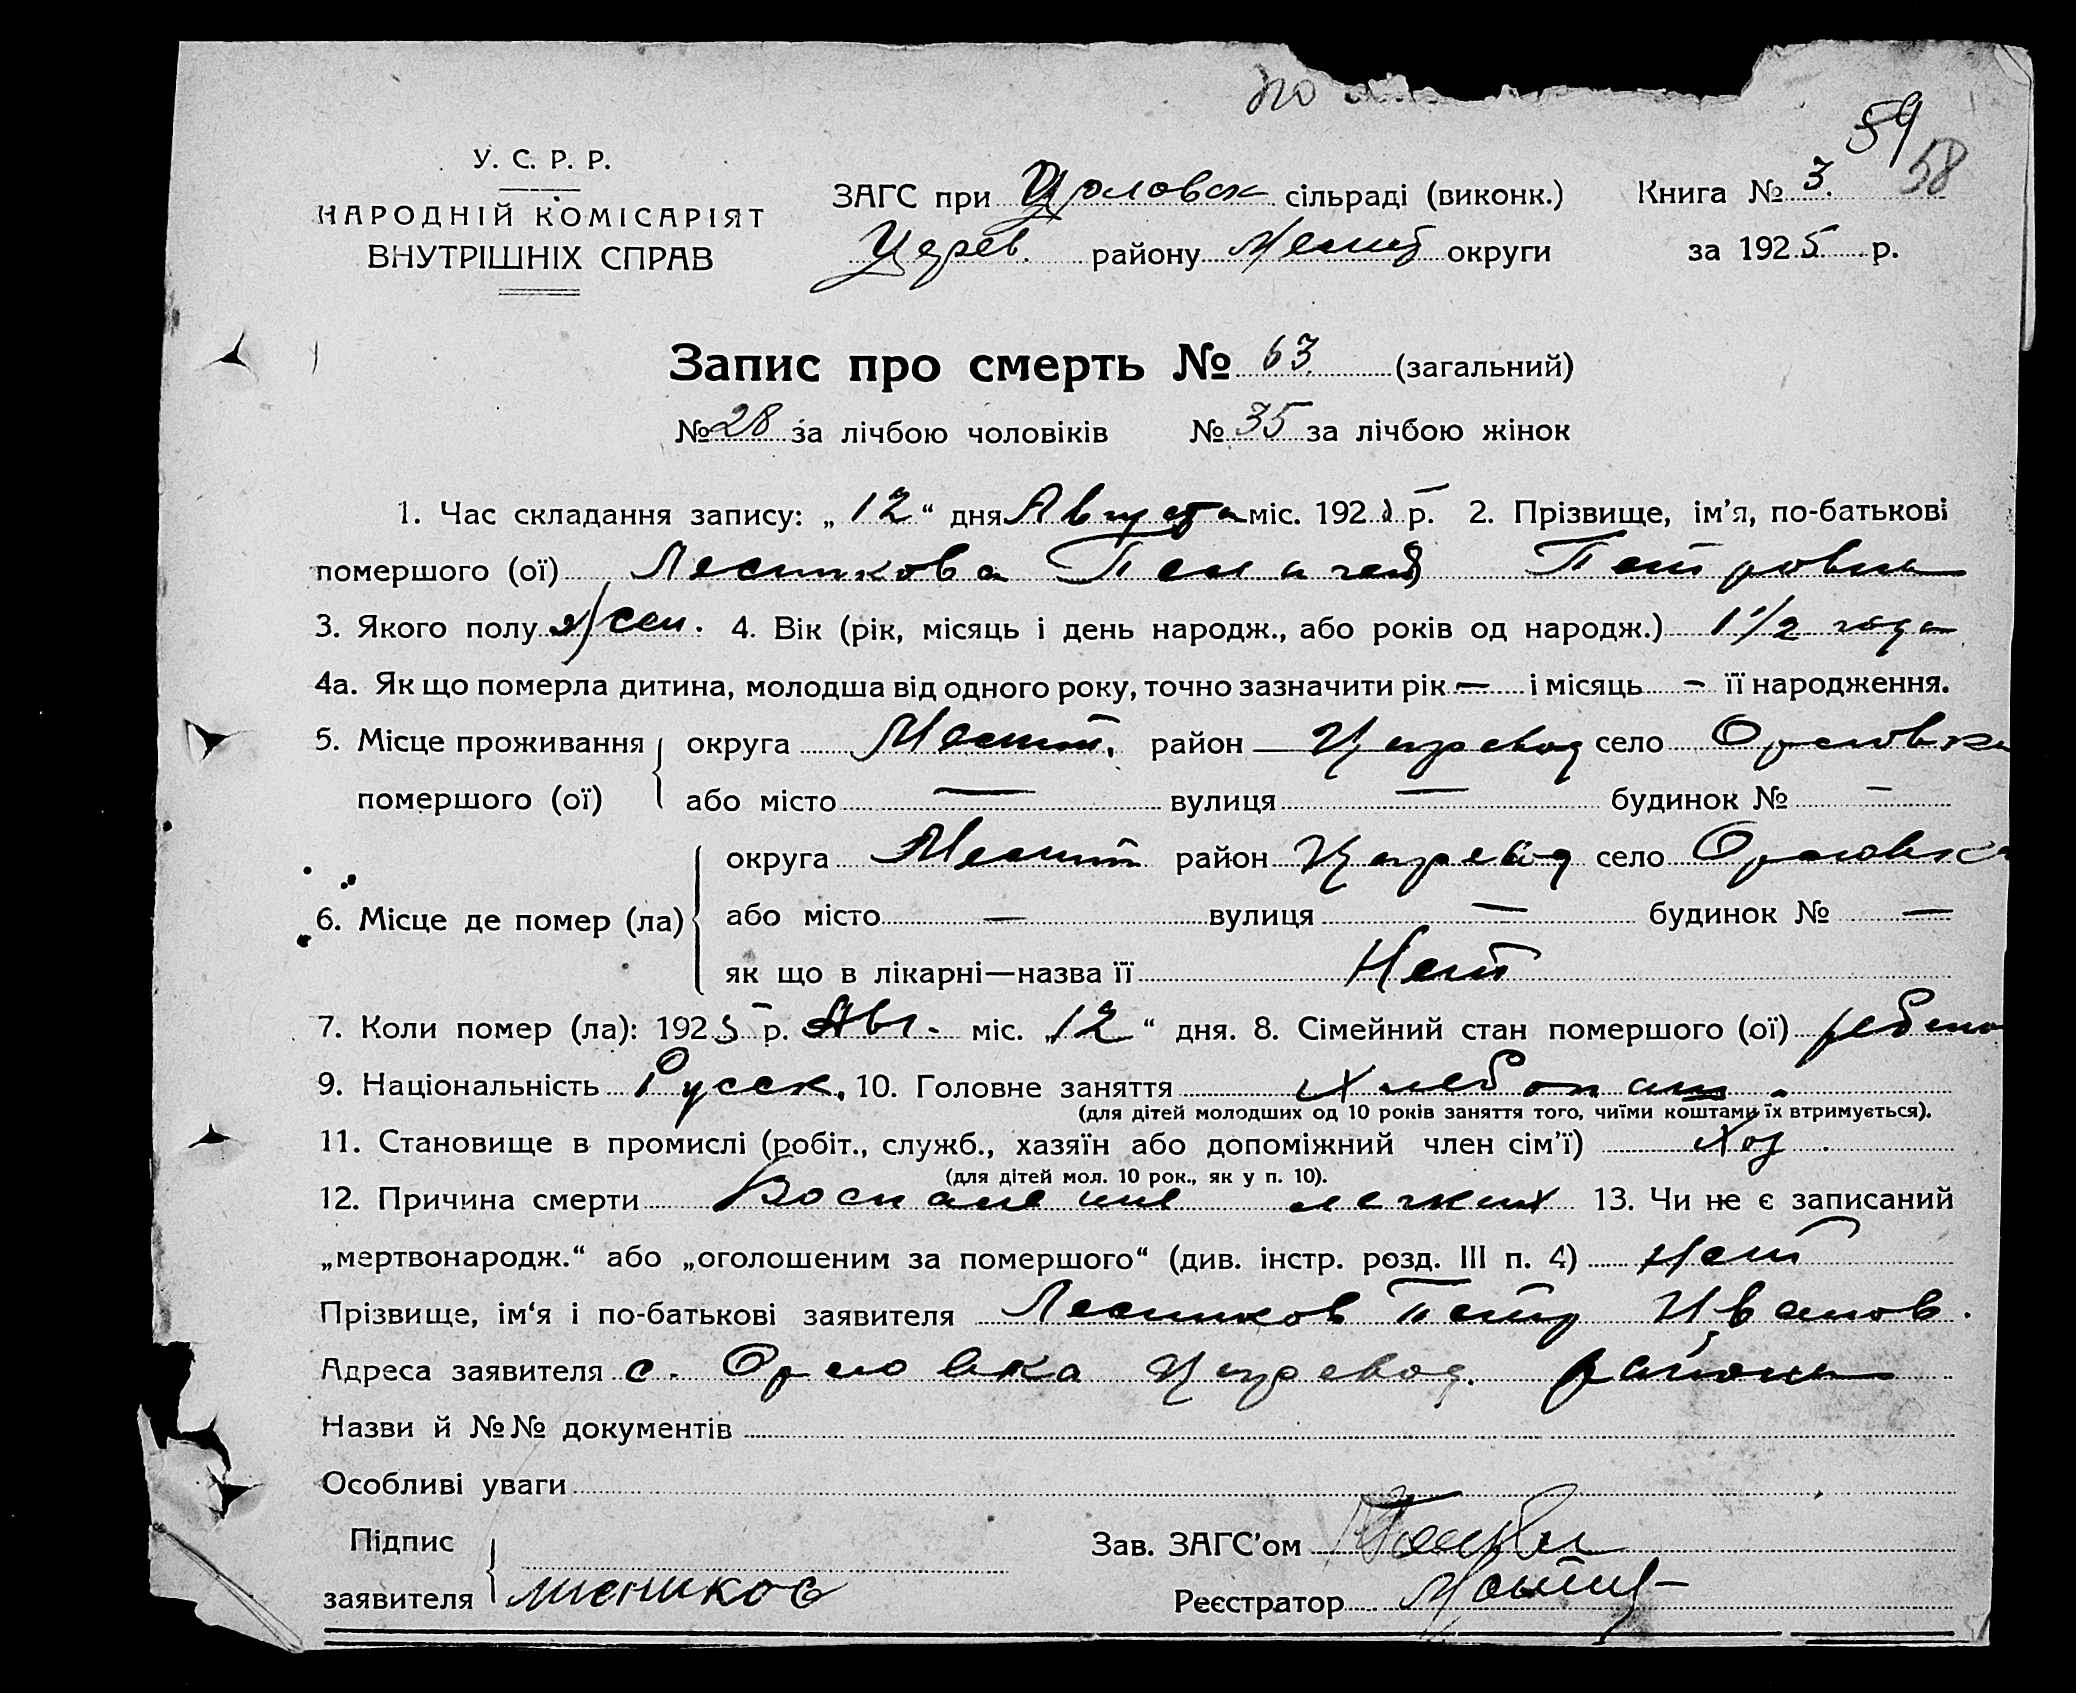 по
59
58
У. С. Р. Р.
НАРОДНІЙ КОМІСАРІЯТ
ВНУТРІШНІХ СПРАВ
ЗАГС при сільраді (виконк.)
Царев. району округи
Книга № 3.
за 1925 р.
Запис про смерть № 63 (загальний)
№ 28 за лічбою чоловіків № 35 за лічбою жінок
1. Час складання запису: „ 12 “ дня Августа міс. 192 р. 2. Прізвище, ім’я, по-батькові
помершого (ої) Лесникова Петровна
3. Якого полу жен. 4. Вік (рік, місяць і день народж., або років од народж.) 1 1/2 года
4а. Як що померла дитина, молодша від одного року, точно зазначити рік — і місяць — її народження.
5. Місце проживання округа район Царевод село Орловка
помершого (ої) або місто — вулиця — будинок № —
округа район Царевод село Орловка
6. Місце де помер (ла) або місто — вулиця — будинок № —
як що в лікарні—назва її Нет
7. Коли помер (ла): 1925 р. Авг. міс. „ 12 “ дня. 8. Сімейний стан помершого (ої) ребено
9. Національність Русск. 10. Головне заняття Хлебопаш.
(для дітей молодших од 10 років заняття того, чиїми коштами їх втримується).
11. Становище в промислі (робіт., служб., хазяїн або допоміжний член сім’ї) Хоз.
(для дітей мол. 10 рок., як у п. 10).
12. Причина смерти Воспаление легких 13. Чи не є записаний
„мертвонародж.“ або „оголошеним за помершого“ (див. інстр. розд. III п. 4) Нет
Прізвище, ім‘я і по-батькові заявителя Лесников Петр Иванов.
Адреса заявителя с. Орловка Царевод. района
Назви й №№ документів
Особливі уваги
Підпис
заявителя лисников
Зав. ЗАГС’ом
Реєстратор